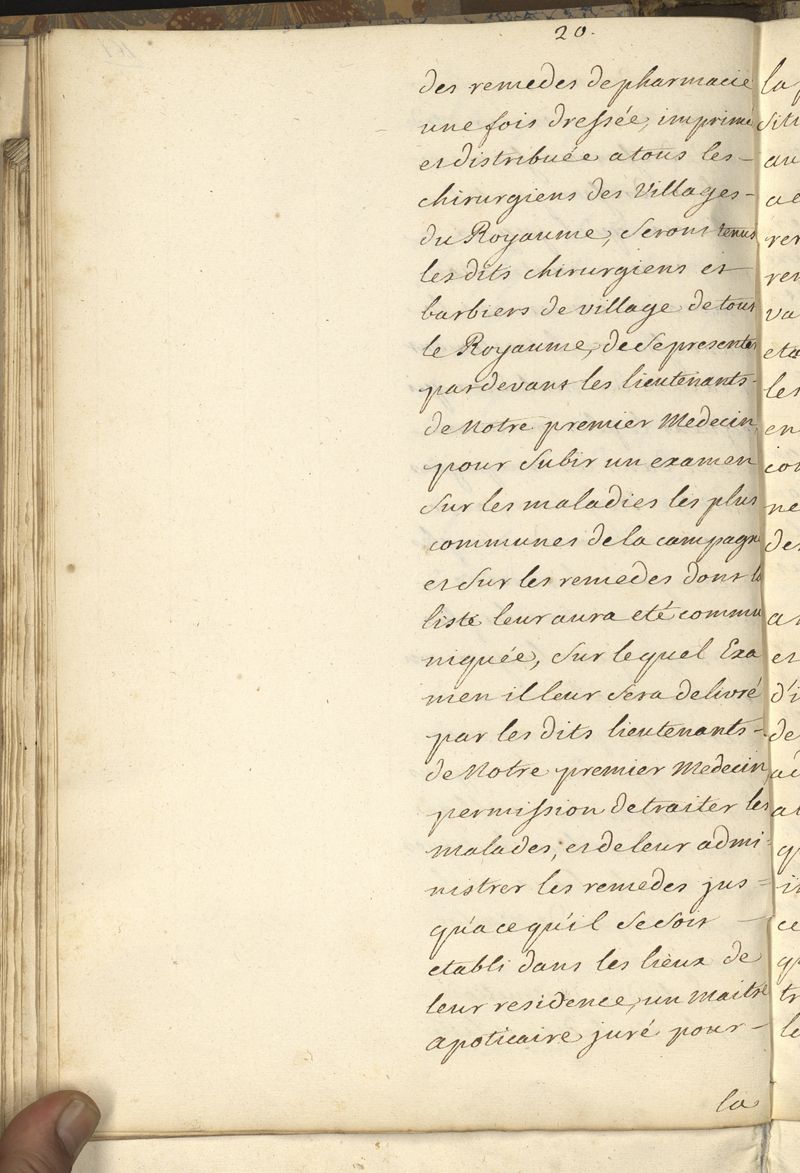 20.
des remedes de pharmacie
une fois dressée, imprimé
et distribuée a tous les -
chirurgiens des Villages -
du Royaume, seront tenus
les dits chirurgiens et -
barbiers de village de tout
le Royaume, de se presenter
par devant les lieutenants -
de Notre premier Medecin
pour subir un examen
sur les maladies les plus
communes de la campagne
et sur les remedes dont la
liste leur aura eté commu
niquée, sur lequel Exa
men il leur sera delivré
par les dits lieutenants -
de Notre premier Medecin
permission de traiter les
malades, et de leur admi-
nistrer les remedes jus =
qu'a ce qu'il se soit -
etabli dans les lieux de
leur residence, un Maitre
apoticaire juré pour -
la